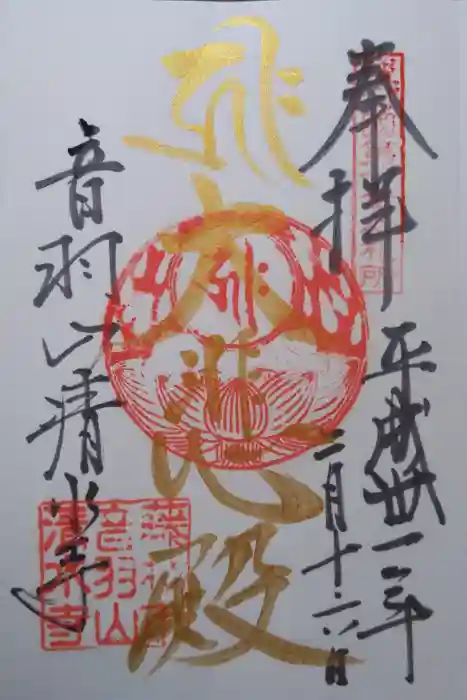 奉拝
平成卅一年
二月十六日
大悲殿
音羽山清水寺
音羽山
清水寺